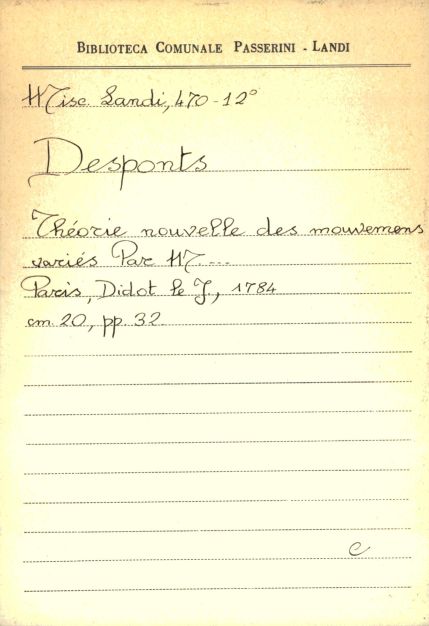 BIBLIOTECA COMUNALE PASSERINI - LANDI
Misc Landi, 470-12°
Desponts
Théorie nouvelle des mouvemens
variés Par M....
Paris, Didot le J., 1784
cm. 20, pp. 32
c